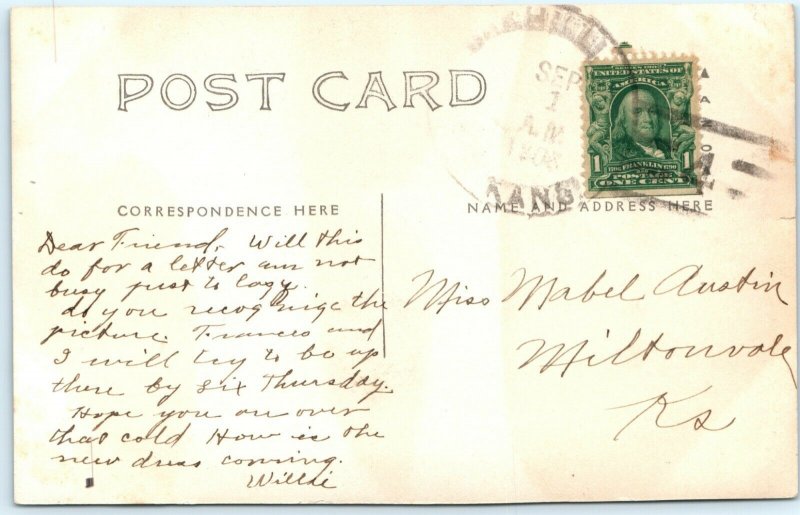 POST CARD
SEP
1
A.M.
KANS
SERIES 1902
UNITED STATES OF
AMERICA
1706 FRANKLIN 1790
1
POSTAGE
ONE CENT
CORRESPONDENCE HERE
NAME AND ADDRESS HERE
Dear Friend, Will this
do for a letter am not
busy just to lazy.
do you recognize the
picture. Frances and
I will try to be up
there by six Thursday.
Hope you are over
that cold How is the
new dress coming.
Willie
Miss Mabel Austin
Miltonvale
Ks